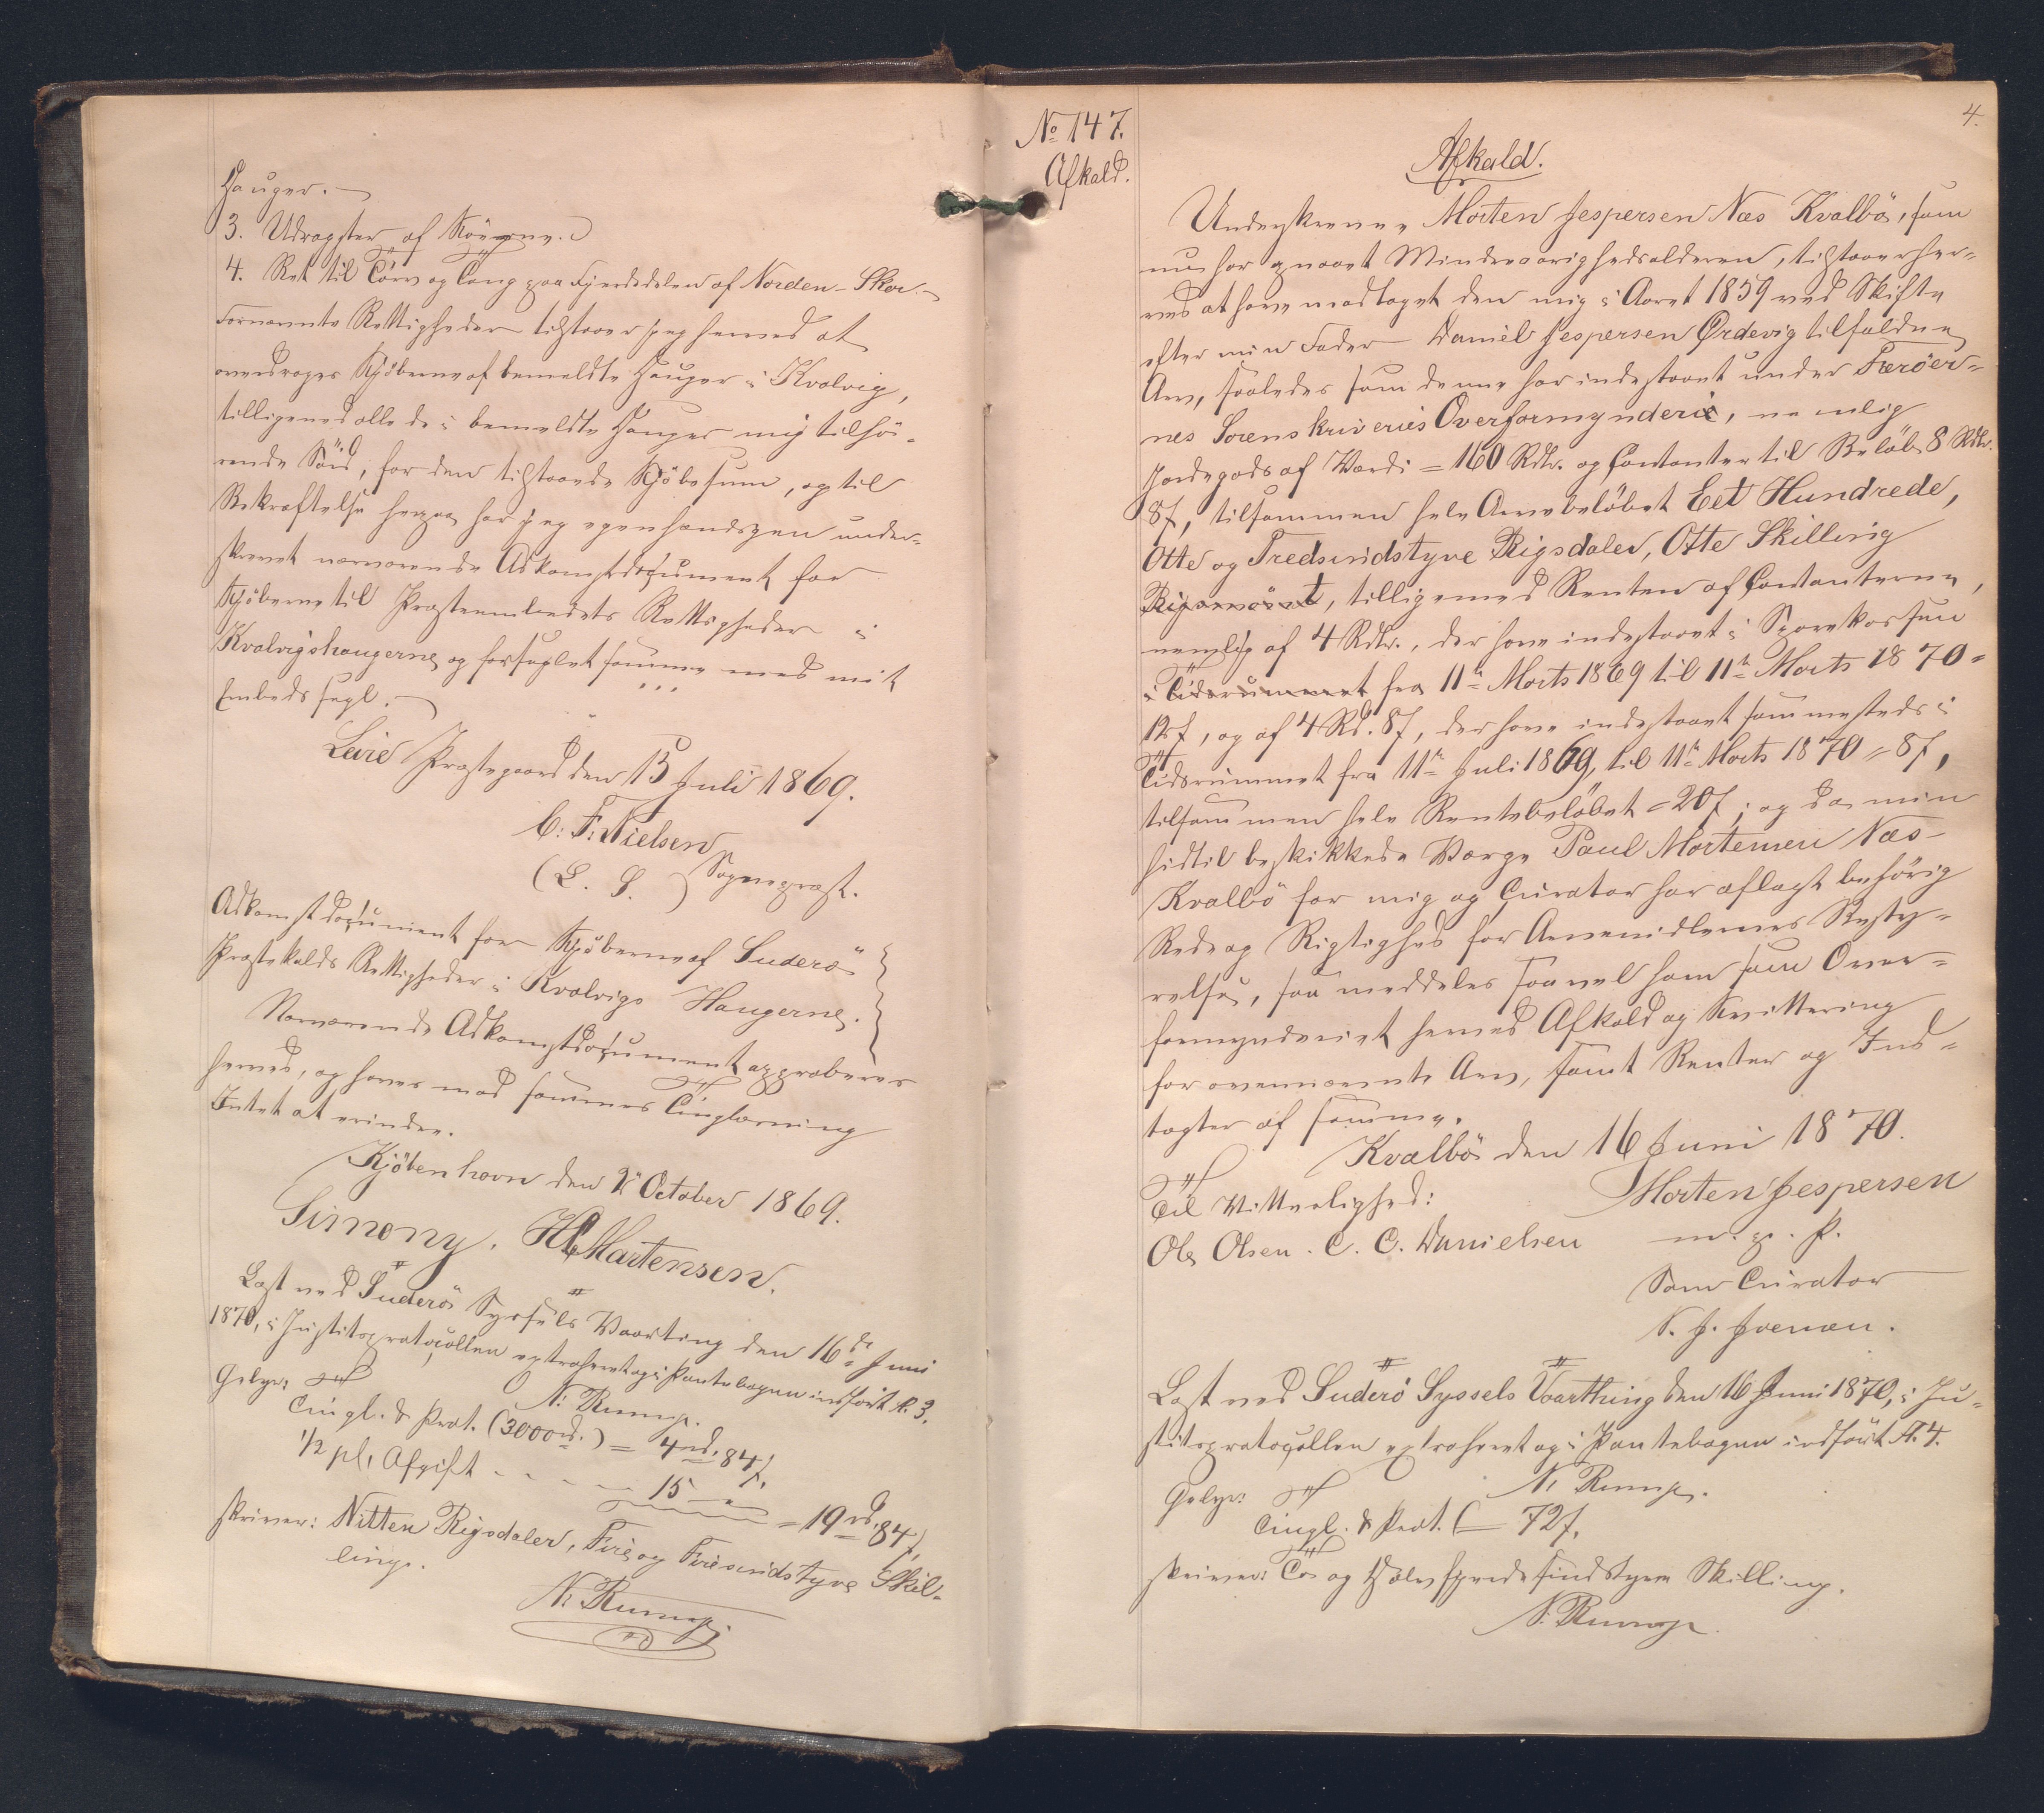 Hauger.
3. Udragster af Köerne.
4. Ret til Törv og Tang paa Fjerdedelen af Norden-Skor.
Fornævnte Rettigheder tilstaaer jeg herved at
overdrages Kjöberne af bemeldte Hauger i Kvalvig,
tilligemed alle de i bemeldte Hauger mig tilhö-
rende Söid, for den tilstaaede Kjöbesum, og til
Bekræftelse herpaa har jeg egenhændigen under-
skrevet nærværende Adkomstdocument for
Kjöberne til Præsteembedets Rettigheder i
Kvalvigshaugerne og forseglet samme med mit
Embedssegl.
Præstegaard den 13 Juli 1869.
C. F. Nielsen
(L. S.) Sognepræst.
Adkomstdocument for Kjöberne af Suderö
Præstekalds Rettigheder i Kvalvigs Haugerne.
Nærværende Adkomstdocument approberes
herved, og haves mod sammes Tinglæsning
Intet at erindre.
Kjöbenhavn den 2 October 1869.
Simony. Martensen.
Læst ved Suderö Syssels Vaarting den 16de Juni
1870, i Justitsprotocollen extraheret og i Pantebogen indfört f. 3.
Gebyr:
N. Rump.
Tingl. & Prot. (3000rd.) = 4rd. 84f.
1/2 pCt. Afgift - - - - 15 - "
= 19rd. 84f,
skriver: Nitten Rigsdaler, Fire og Firesindstyve Skil-
ling.
N. Rump
No 147.
Afkald.
4.
Afkald.
Underskrevne Morten Jespersen Næs Kvalbö, som
nu har opnaaet Mindreaarighedsalderen, tilstaaer her-
ved at have modtaget den mig i Aaret 1859 ved Skifte
efter min Fader Daniel Jespersen Ørdevig tilfaldne
Arv, saaledes som denne har indestaaet under Færöer-
nes Sorenskriveries Overformynderie, nemlig
Jordegods af Værdi = 160 Rdlr. og Contanter til Belöb 8 Rdlr.
8f, tilsammen hele Arvebelöbet Eet Hundrede,
Otte og Tredsindstyve Rigsdaler, Otte Skilling
Rigsmönt, tilligemed Renten af Contanterne,
nemlig af 4 Rdlr., der have indestaaet i Sparekassen
i Tidsrummet fra 11te Marts 1869 til 11te Marts 1870 =
12f, og af 4 Rd. 8f, der have indestaaet sammesteds i
Tidsrummet fra 11te Juli 1869, til 11te Marts 1870 = 8f,
tilsammen hele Rentebelöbet = 20f; og da min
hidtil beskikkede Værge Paul Mortensen Næs
Kvalbö for mig og Curator har aflagt behörig
Rede og Rigtighed for Arvemidlernes Besty-
relse, saa meddeles saavel ham som Over-
formynderiet herved Afkald og Kvittering
for ovennævnte Arv, samt Renter og Ind-
tægter af samme.
Kvalbö den 16 Juni 1870.
Til Vitterlighed:
Morten Jespersen
Ole Olsen. C. C. Danielsen
m. p. P.
Som Curator
Læst ved Suderö Syssels Vaarthing den 16 Juni 1870, i Ju-
stitsprotocollen extraheret og i Pantebogen indfört f. 4.
N. Rump.
Gebyr:
Tingl. & Prot. = 72f.
skriver: To og Halvfjerdesindstyve Skilling.
N. Rump